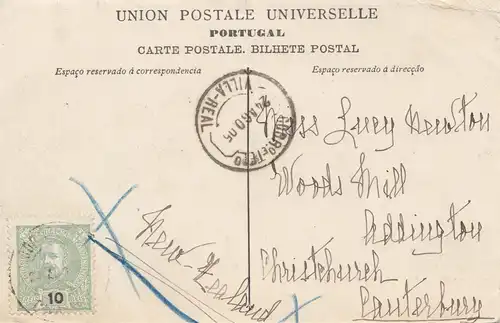 UNION POSTALE UNIVERSELLE
PORTUGAL
CARTE POSTALE. BILHETE POSTAL
Espaço reservado á correspondencia
Espaço reservado á direcção
VILLA-REAL
24 AGO 05
Miss Lucy Newton
Woods Mill
Addington
Christchurch
Canterbury
New-Zealand
10